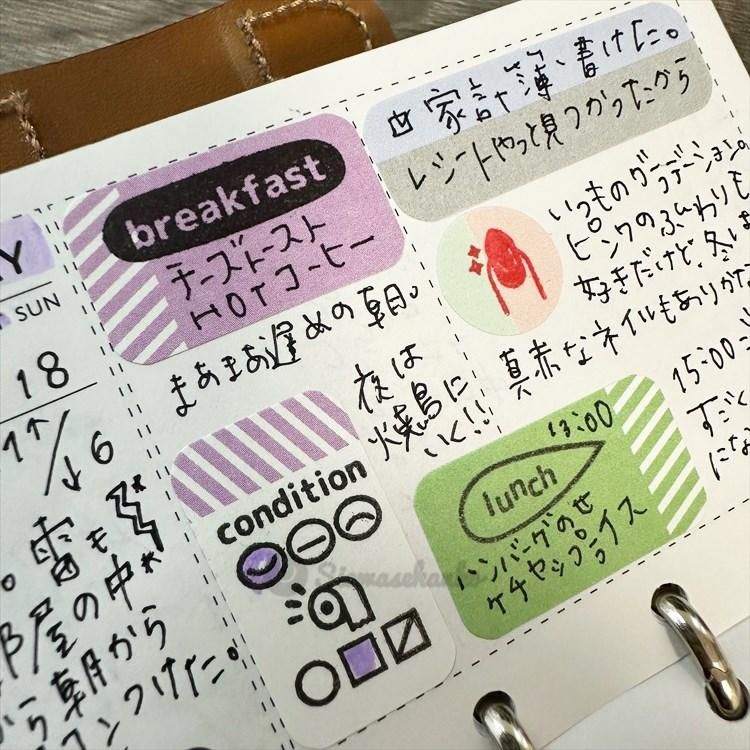 Y
SUN
18
1↑/↓6
。雷も
部屋の中
から朝から
コンつけた。
breakfast
チーズトースト
HOTコーヒー
まあまあ遅めの朝。
夜は
焼鳥に
いく!!
condition
家計簿、書けた。
レシートやっと見つかったから
いつものグラデーション。
ピンクのふんわりも
好きだけど、冬は
真赤なネイルもありかな
13:00
lunch
ハンバーグのせ
ケチャップライス
15:00-
すごく
にな
Siawasekanbo